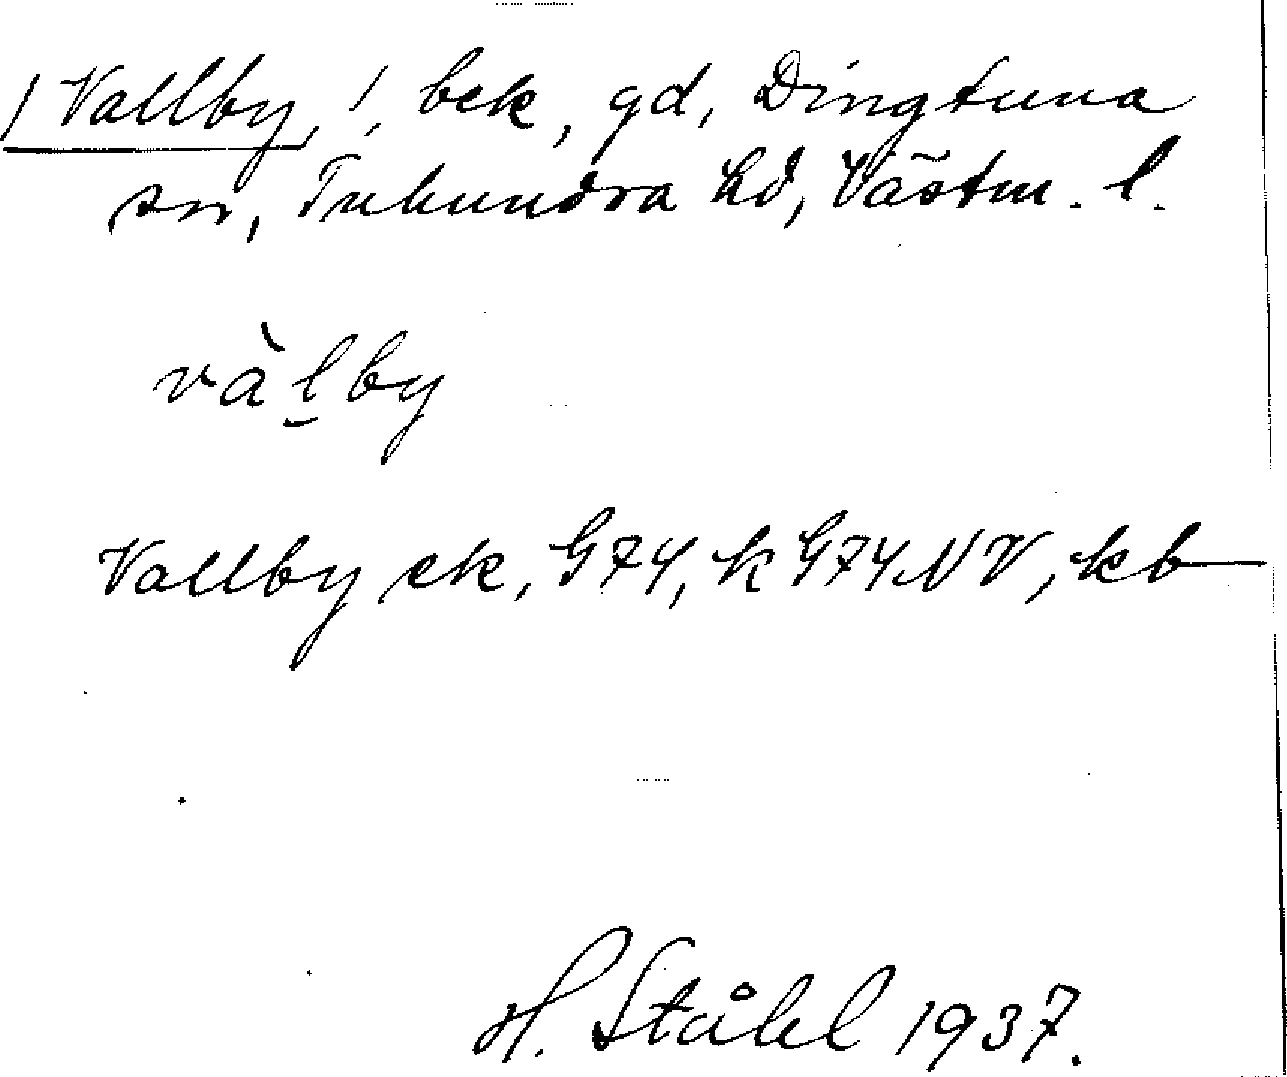 /Vallby, /, bek, gd, Dingtuna
sn, Tuhundra hd, Västm. l.
và l̠ by
Vallby ek, G74, k G74NV, kb
H. Ståhl 1937.